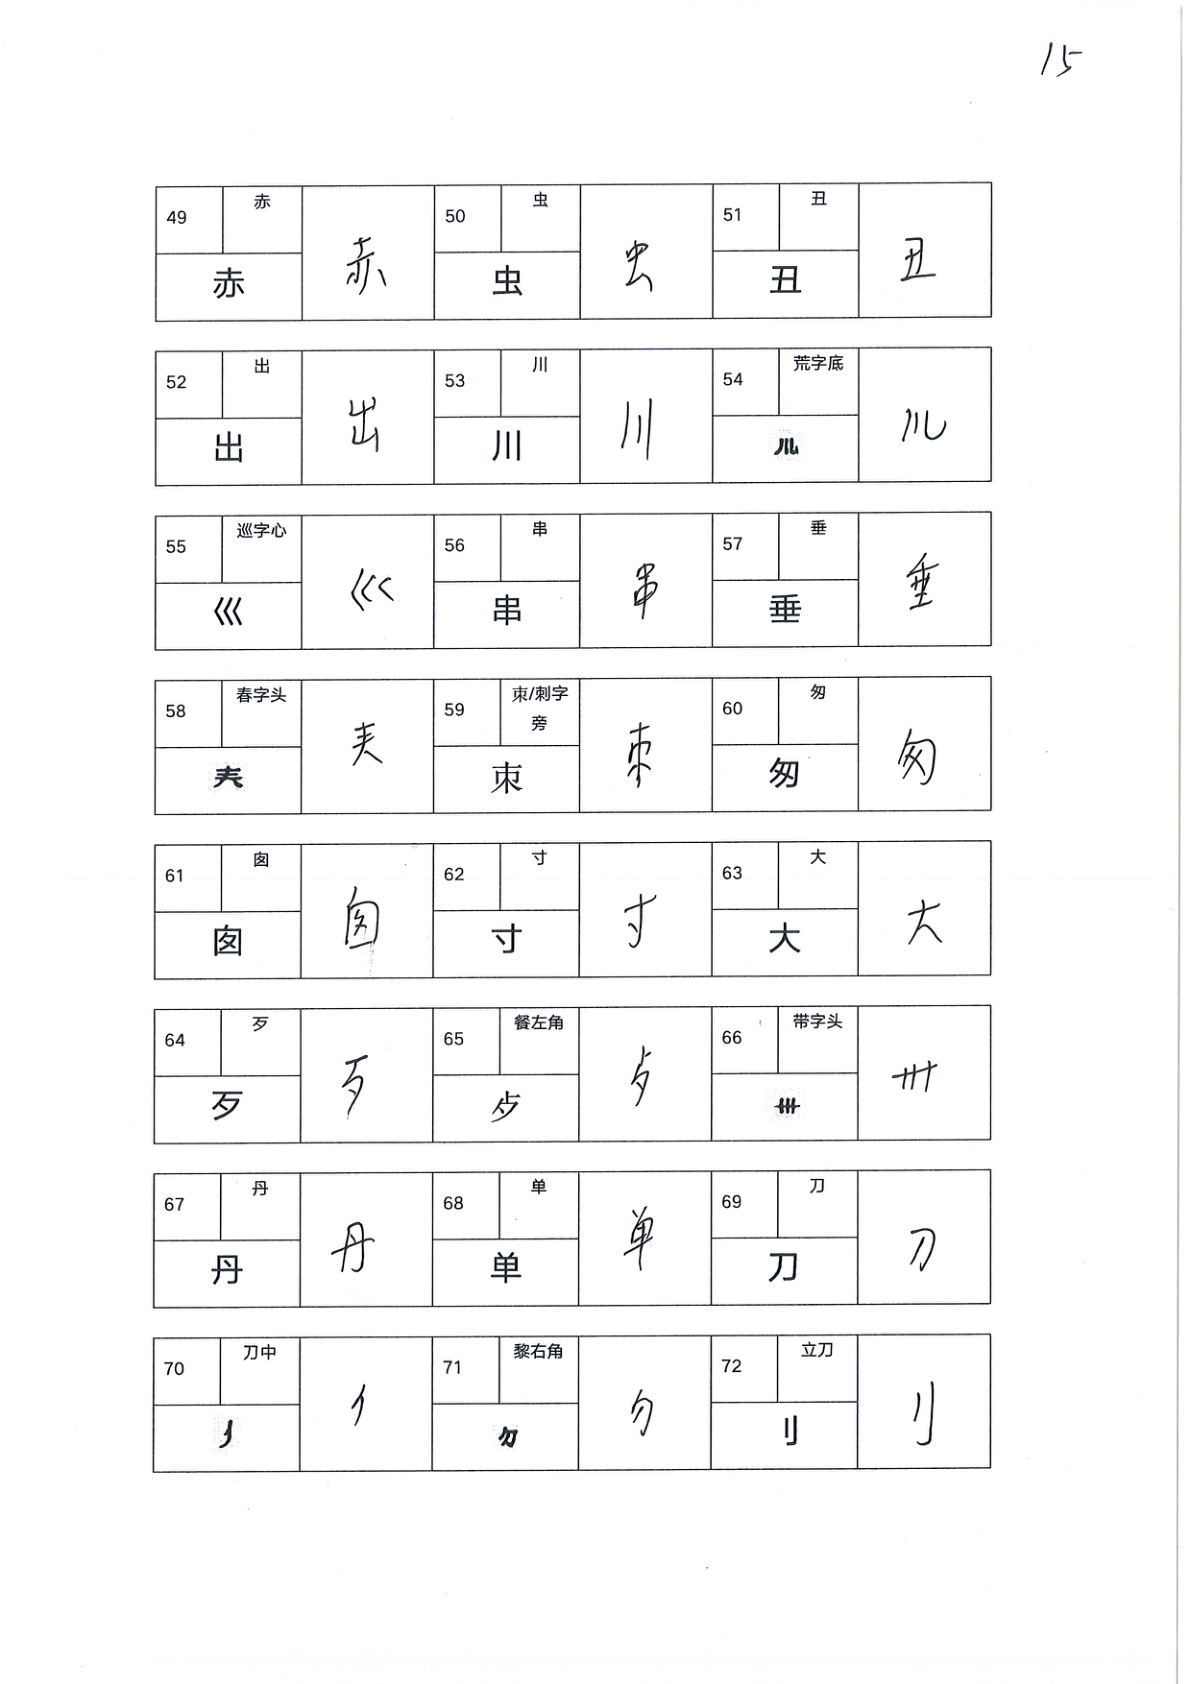 15
49 赤 赤 赤 50 虫 虫 虫 51 丑 丑 丑
52 出 出 出 53 川 川 川 54 荒字底 㐬
55 巡字心 巛 巛 56 串 串 串 57 垂 垂 垂
58 春字头 𡗗 𡗗 59 朿/刺字旁 朿 朿 60 匆 匆 匆
61 囱 囱 囱 62 寸 寸 寸 63 大 大 大
64 歹 歹 歹 65 餐左角 𣦵 𣦵 66 带字头 卌 卌
67 丹 丹 丹 68 单 单 单 69 刀 刀 刀
70 刀中 71 黎右角 72 立刀 刂 刂